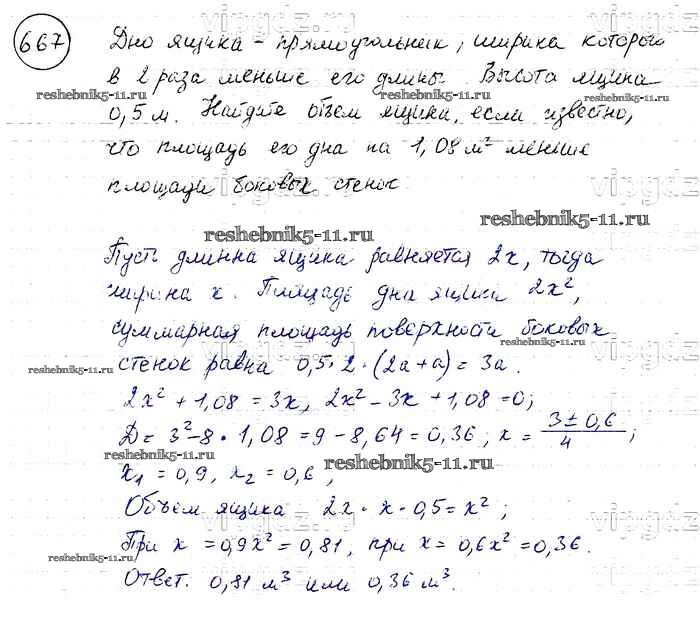 667
Дно ящика - прямоугольник, ширина которого
в 2 раза меньше его длины. Высота ящика
0,5 м. Найдите объем ящика, если известно,
что площадь его дна на 1,08 м² меньше
площади боковых стенок
Пусть длинна ящика равняется 2x, тогда
ширина x. Площадь дна ящика 2x²,
суммарная площадь поверхности боковых
стенок равна 0,5·2·(2a+a)=3a.
2x²+1,08=3x, 2x²-3x+1,08=0;
D=3²-8·1,08=9-8,64=0,36; x=(3±0,6)/4;
x₁=0,9, x₂=0,6;
Объем ящика 2x·x·0,5=x²;
При x=0,9x²=0,81, при x=0,6x²=0,36.
Ответ. 0,81 м³ или 0,36 м³.
reshebnik5-11.ru
reshebnik5-11.ru
reshebnik5-11.ru
reshebnik5-11.ru
reshebnik5-11.ru
reshebnik5-11.ru
reshebnik5-11.ru
reshebnik5-11.ru
reshebnik5-11.ru